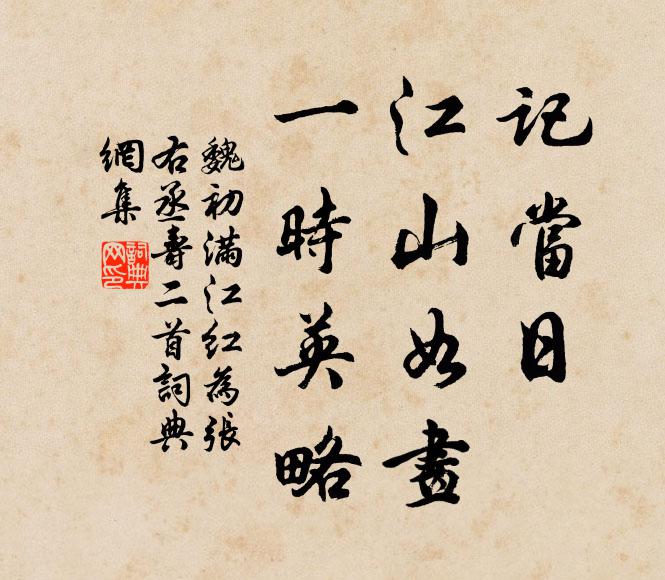 記當日
江山如畫
一時英略
魏初滿江红為張
右丞壽二首詞典
網集
詞典
网印